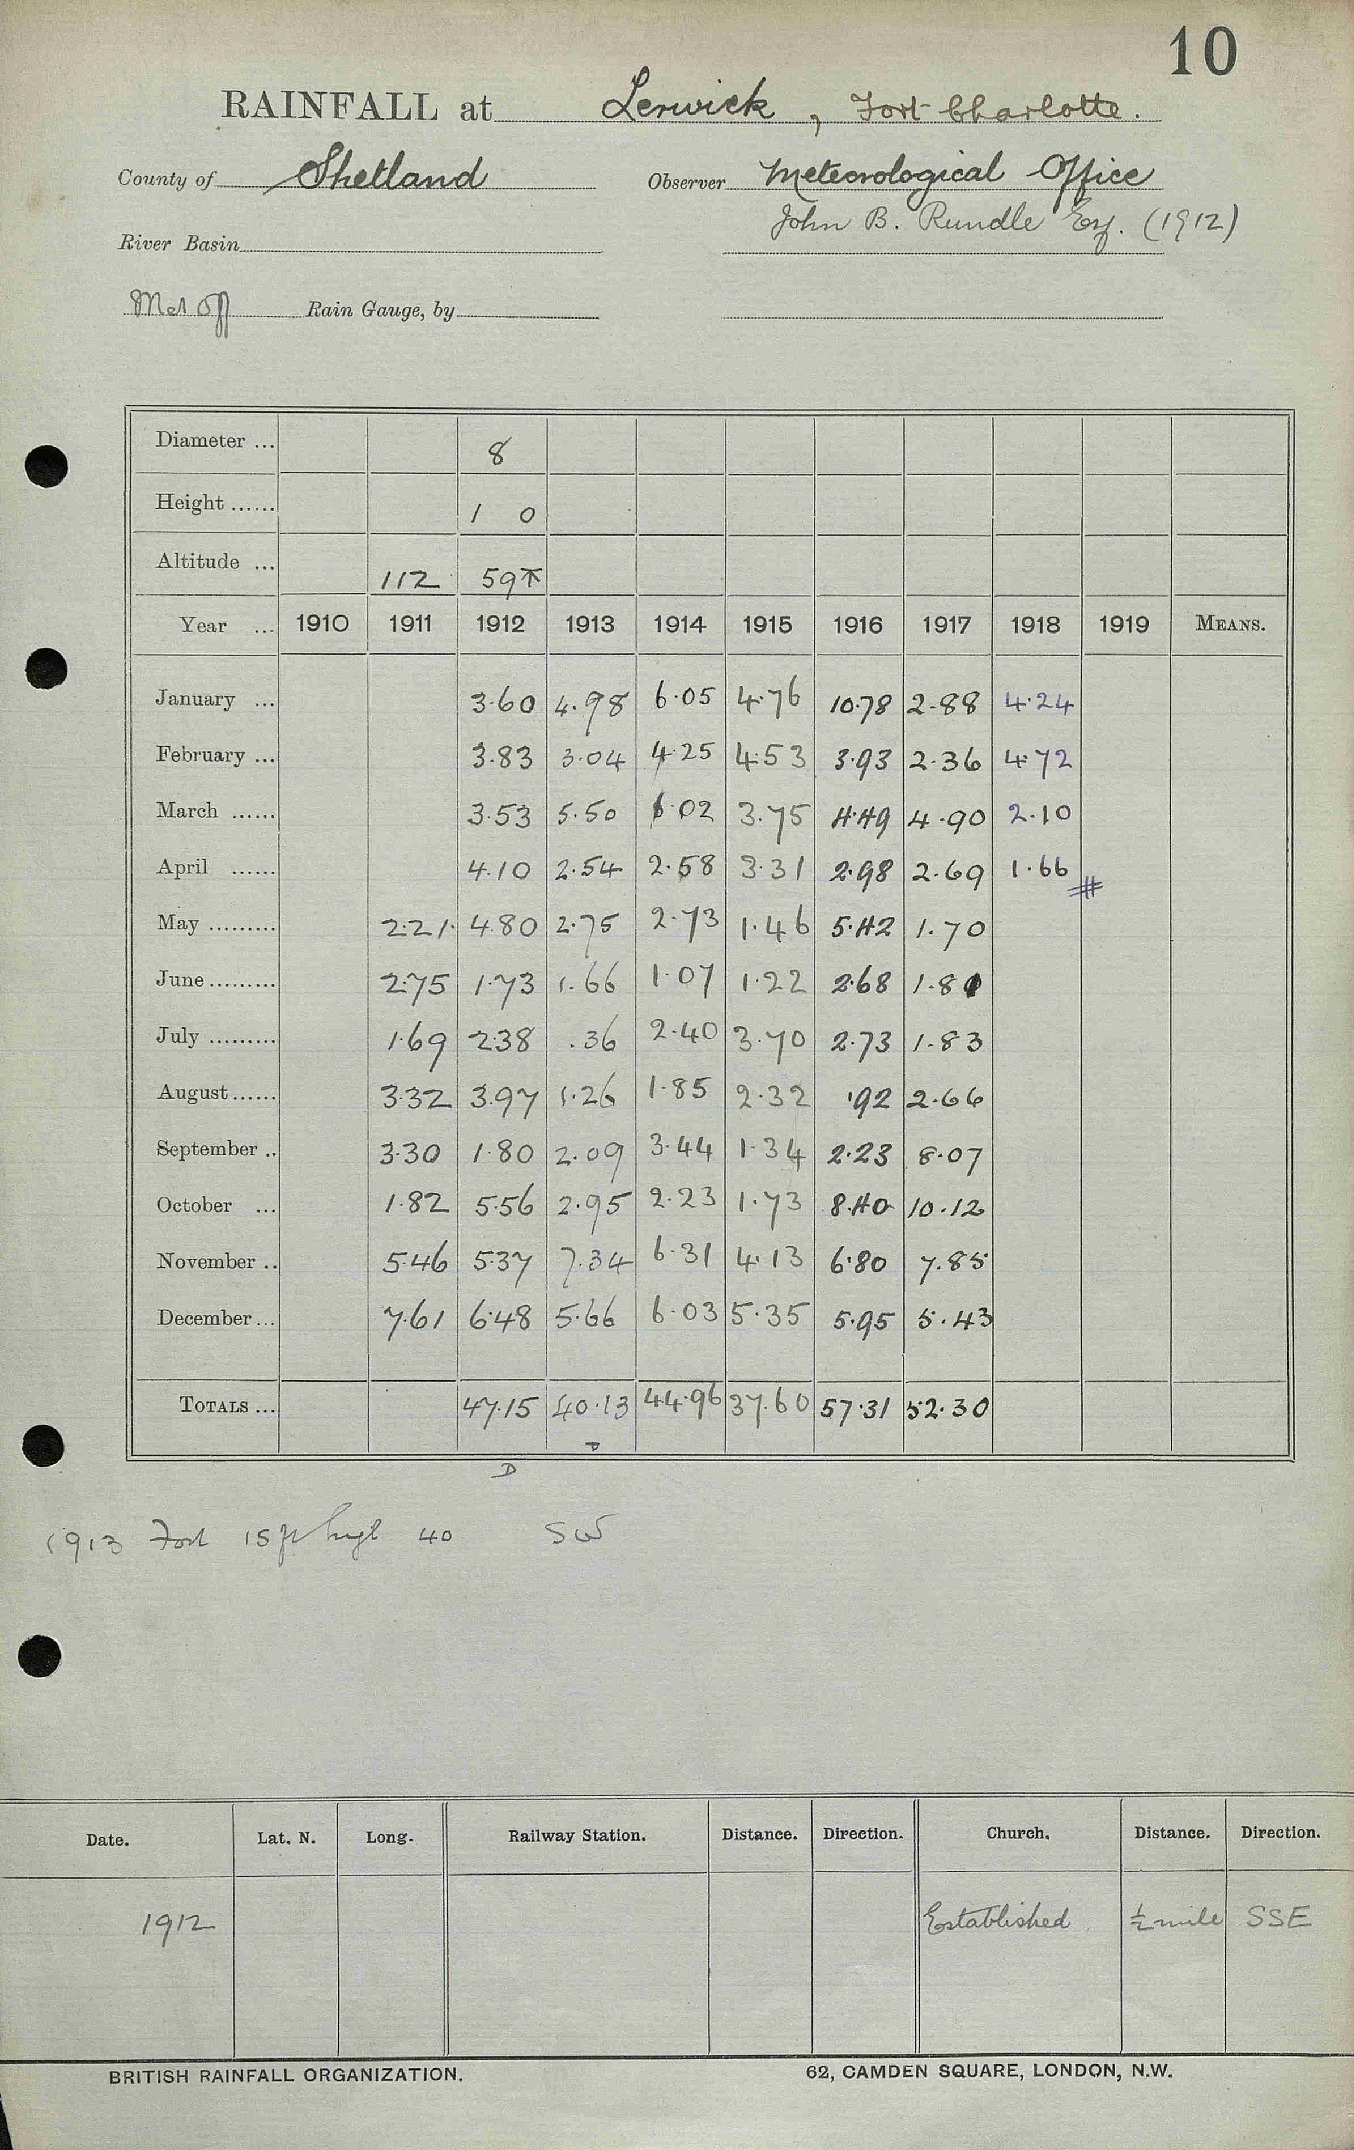 10
RAINFALL at Lerwick, Fort Charlotte.
County of Shetland Observer Meteorological Office
John B. Rundle Esq. (1912)
River Basin
Met Off Rain Gauge, by
Diameter ... 8
Height ...... 1 0
Altitude ... 112 59
Year ... 1910 1911 1912 1913 1914 1915 1916 1917 1918 1919 MEANS.
January ... 3.60 4.98 6.05 4.76 10.78 2.88 4.24
February ... 3.83 3.04 4.25 4.53 3.93 2.36 4.72
March ...... 3.53 5.50 6.02 3.75 4.49 4.90 2.10
April ...... 4.10 2.54 2.58 3.31 2.98 2.69 1.66 #
May ......... 2.21 4.80 2.75 2.73 1.46 5.42 1.70
June ......... 2.75 1.73 1.66 1.07 1.22 2.68 1.81
July ......... 1.69 2.38 .36 2.40 3.70 2.73 1.83
August ...... 3.32 3.97 1.26 1.85 2.32 .92 2.66
September .. 3.30 1.80 2.09 3.44 1.34 2.23 8.07
October ... 1.82 5.56 2.95 2.23 1.73 8.40 10.12
November .. 5.46 5.37 7.34 6.31 4.13 6.80 7.85
December ... 7.61 6.48 5.66 6.03 5.35 5.95 5.43
TOTALS ... 47.15 40.13 44.96 37.60 57.31 52.30
D
D
1913 Fort 15 ft high 40 SW
Date. Lat. N. Long. Railway Station. Distance. Direction. Church. Distance. Direction.
1912 Established ½ mile SSE
BRITISH RAINFALL ORGANIZATION. 62, CAMDEN SQUARE, LONDON, N.W.